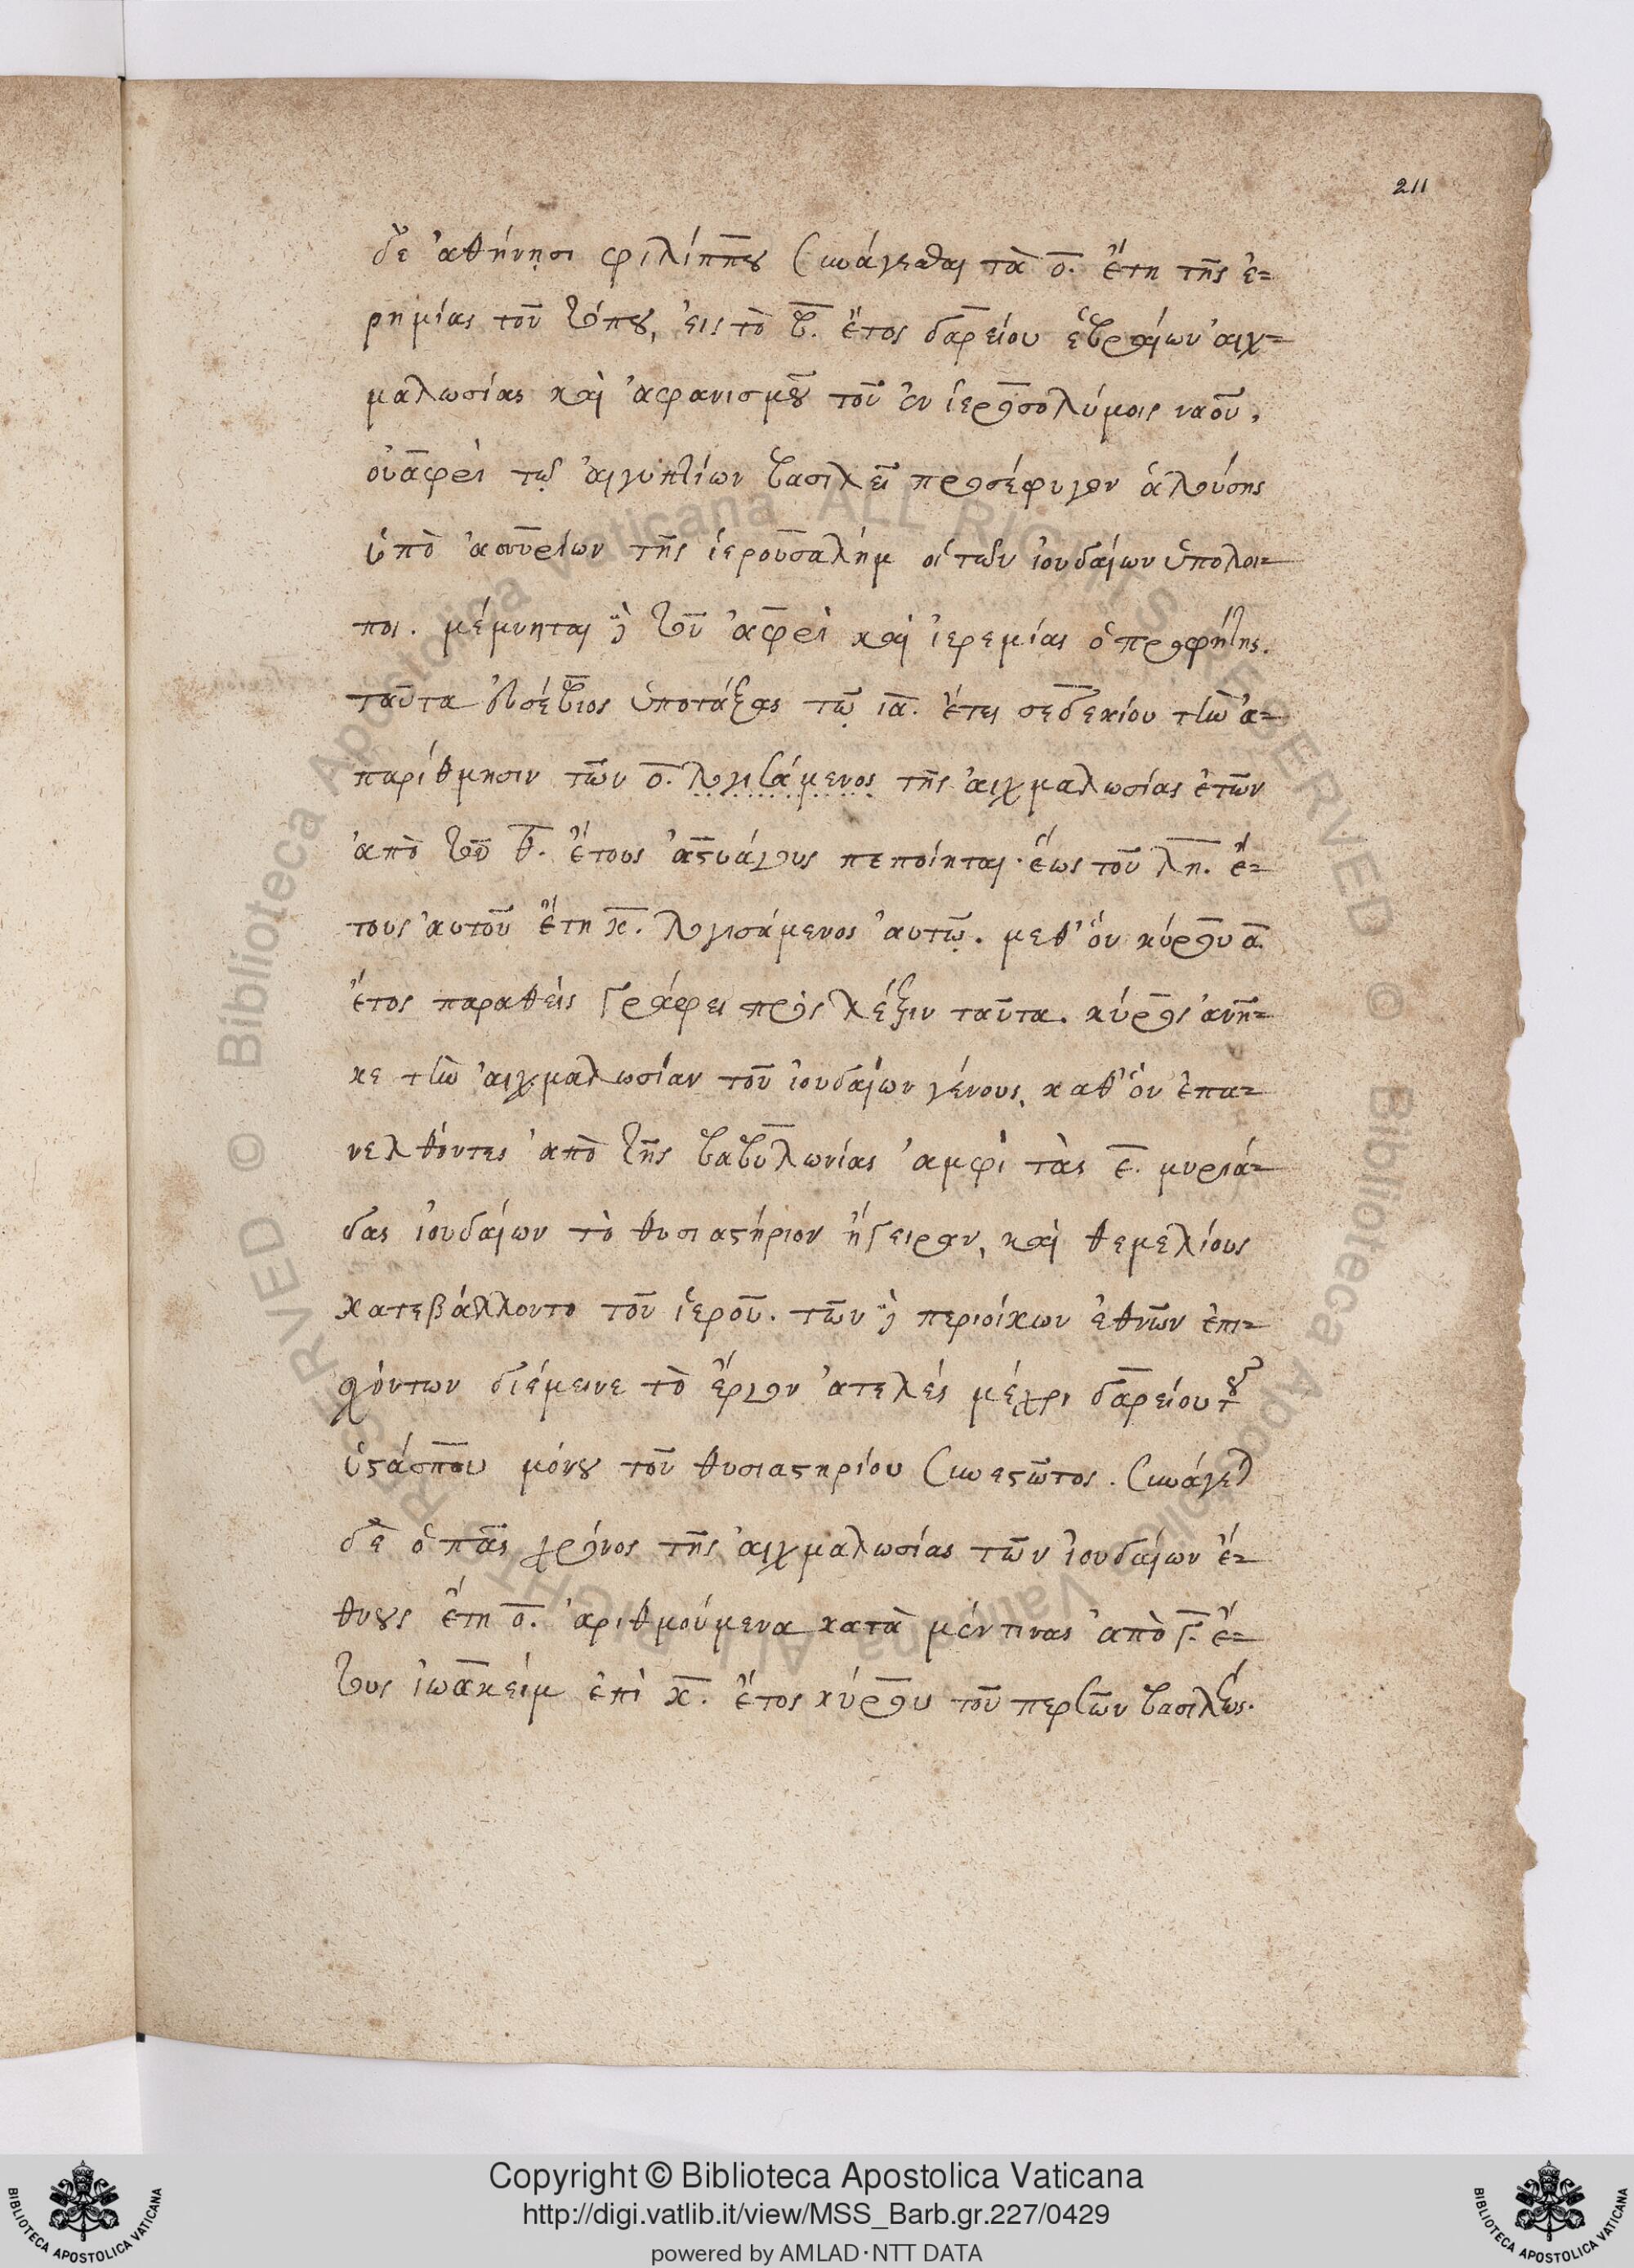 211
δὲ ἀθήνησι φιλίππου συνάγεσθαι τὰ ο. ἔτη τῆς ἐ=
ρημίας τοῦ τόπου, εἰς τὸ β. ἔτος δαρείου ἑβραίων αἰχ=
μαλωσίας καὶ ἀφανισμοῦ τοῦ ἐν ἱεροσολύμοις ναοῦ,
οὐαφρὶ τῷ αἰγυπτίων βασιλεῖ προσέφυγον ἁλούσης
ὑπὸ ἀσσυρίων τῆς ἱερουσαλὴμ οἱ τῶν ἰουδαίων ὑπόλοι=
ποι. μέμνηται δὲ τοῦ ἀφρὶ καὶ ἱερεμίας ὁ προφήτης.
ταῦτα εὐσέβιος ὑποτάξας τῷ ια. ἔτει σεδεκίου τὴν ἀ=
παρίθμησιν τῶν ο. λογισάμενος τῆς αἰχμαλωσίας ἐτῶν
ἀπὸ τοῦ θ. ἔτους ἀστυάγους πεποίηται. ἕως τοῦ λη. ἔ=
τους αὐτοῦ ἔτη κ. λογισάμενος αὐτῷ. μεθ' ὃν κύρου α.
ἔτος παραθεὶς γράφει πρὸς λέξιν ταῦτα. κύρος ἀνῆ=
κε τὴν αἰχμαλωσίαν τοῦ ἰουδαίων γένους, καθ' ὃν ἐπα=
νελθόντες ἀπὸ τῆς βαβυλωνίας ἀμφὶ τὰς ε. μυριά=
δας ἰουδαίων τὸ θυσιαστήριον ἤγειραν, καὶ θεμελίους
κατεβάλλοντο τοῦ ἱεροῦ. τῶν δὲ περιοίκων ἐθνῶν ἐπι=
χόντων διέμεινε τὸ ἔργον ἀτελὲς μέχρι δαρείου τοῦ
ὑστάσπου μόνου τοῦ θυσιαστηρίου συνεστῶτος. συνάγει
δὲ ὁ πᾶς χρόνος τῆς αἰχμαλωσίας τῶν ἰουδαίων ἔ=
θνους ἔτη ο. ἀριθμούμενα κατὰ μέν τινας ἀπὸ γ. ἔ=
τους ἰωακεὶμ ἐπὶ κ. ἔτος κύρου τοῦ περσῶν βασιλέως.
Copyright © Biblioteca Apostolica Vaticana
http://digi.vatlib.it/view/MSS_Barb.gr.227/0429
powered by AMLAD · NTT DATA
BIBLIOTECA APOSTOLICA VATICANA
BIBLIOTECA APOSTOLICA VATICANA
© Biblioteca Apostolica Vaticana ALL RIGHTS RESERVED © Biblioteca Apostolica Vaticana ALL RIGHTS RESERVED